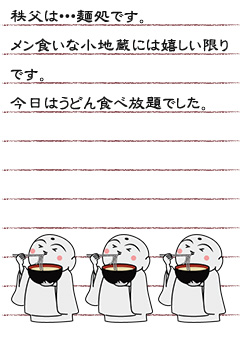 秩父は・・・麺処です。
メン食いな小地蔵には嬉しい限り
です。
今日はうどん食べ放題でした。